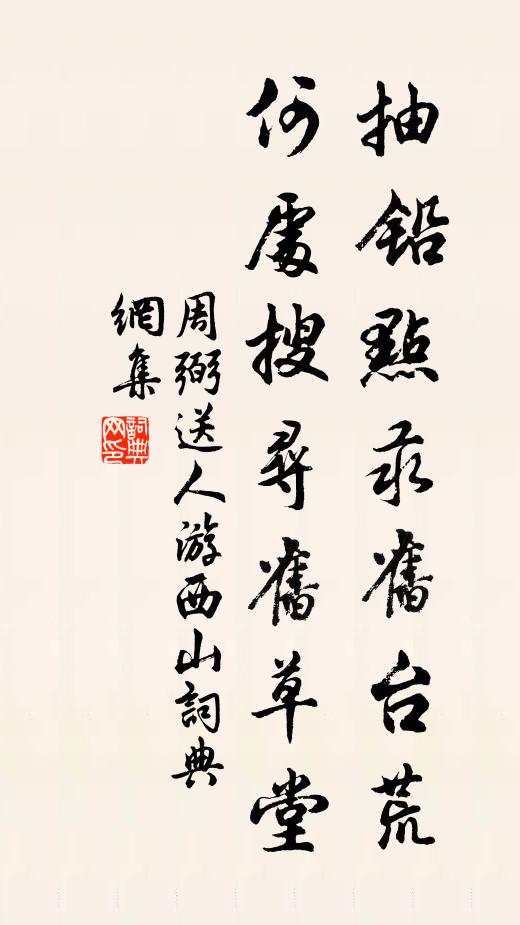 抽鉛點汞舊台荒
何處搜尋舊草堂
周弼送人游西山詞典
網集
詞典
网印